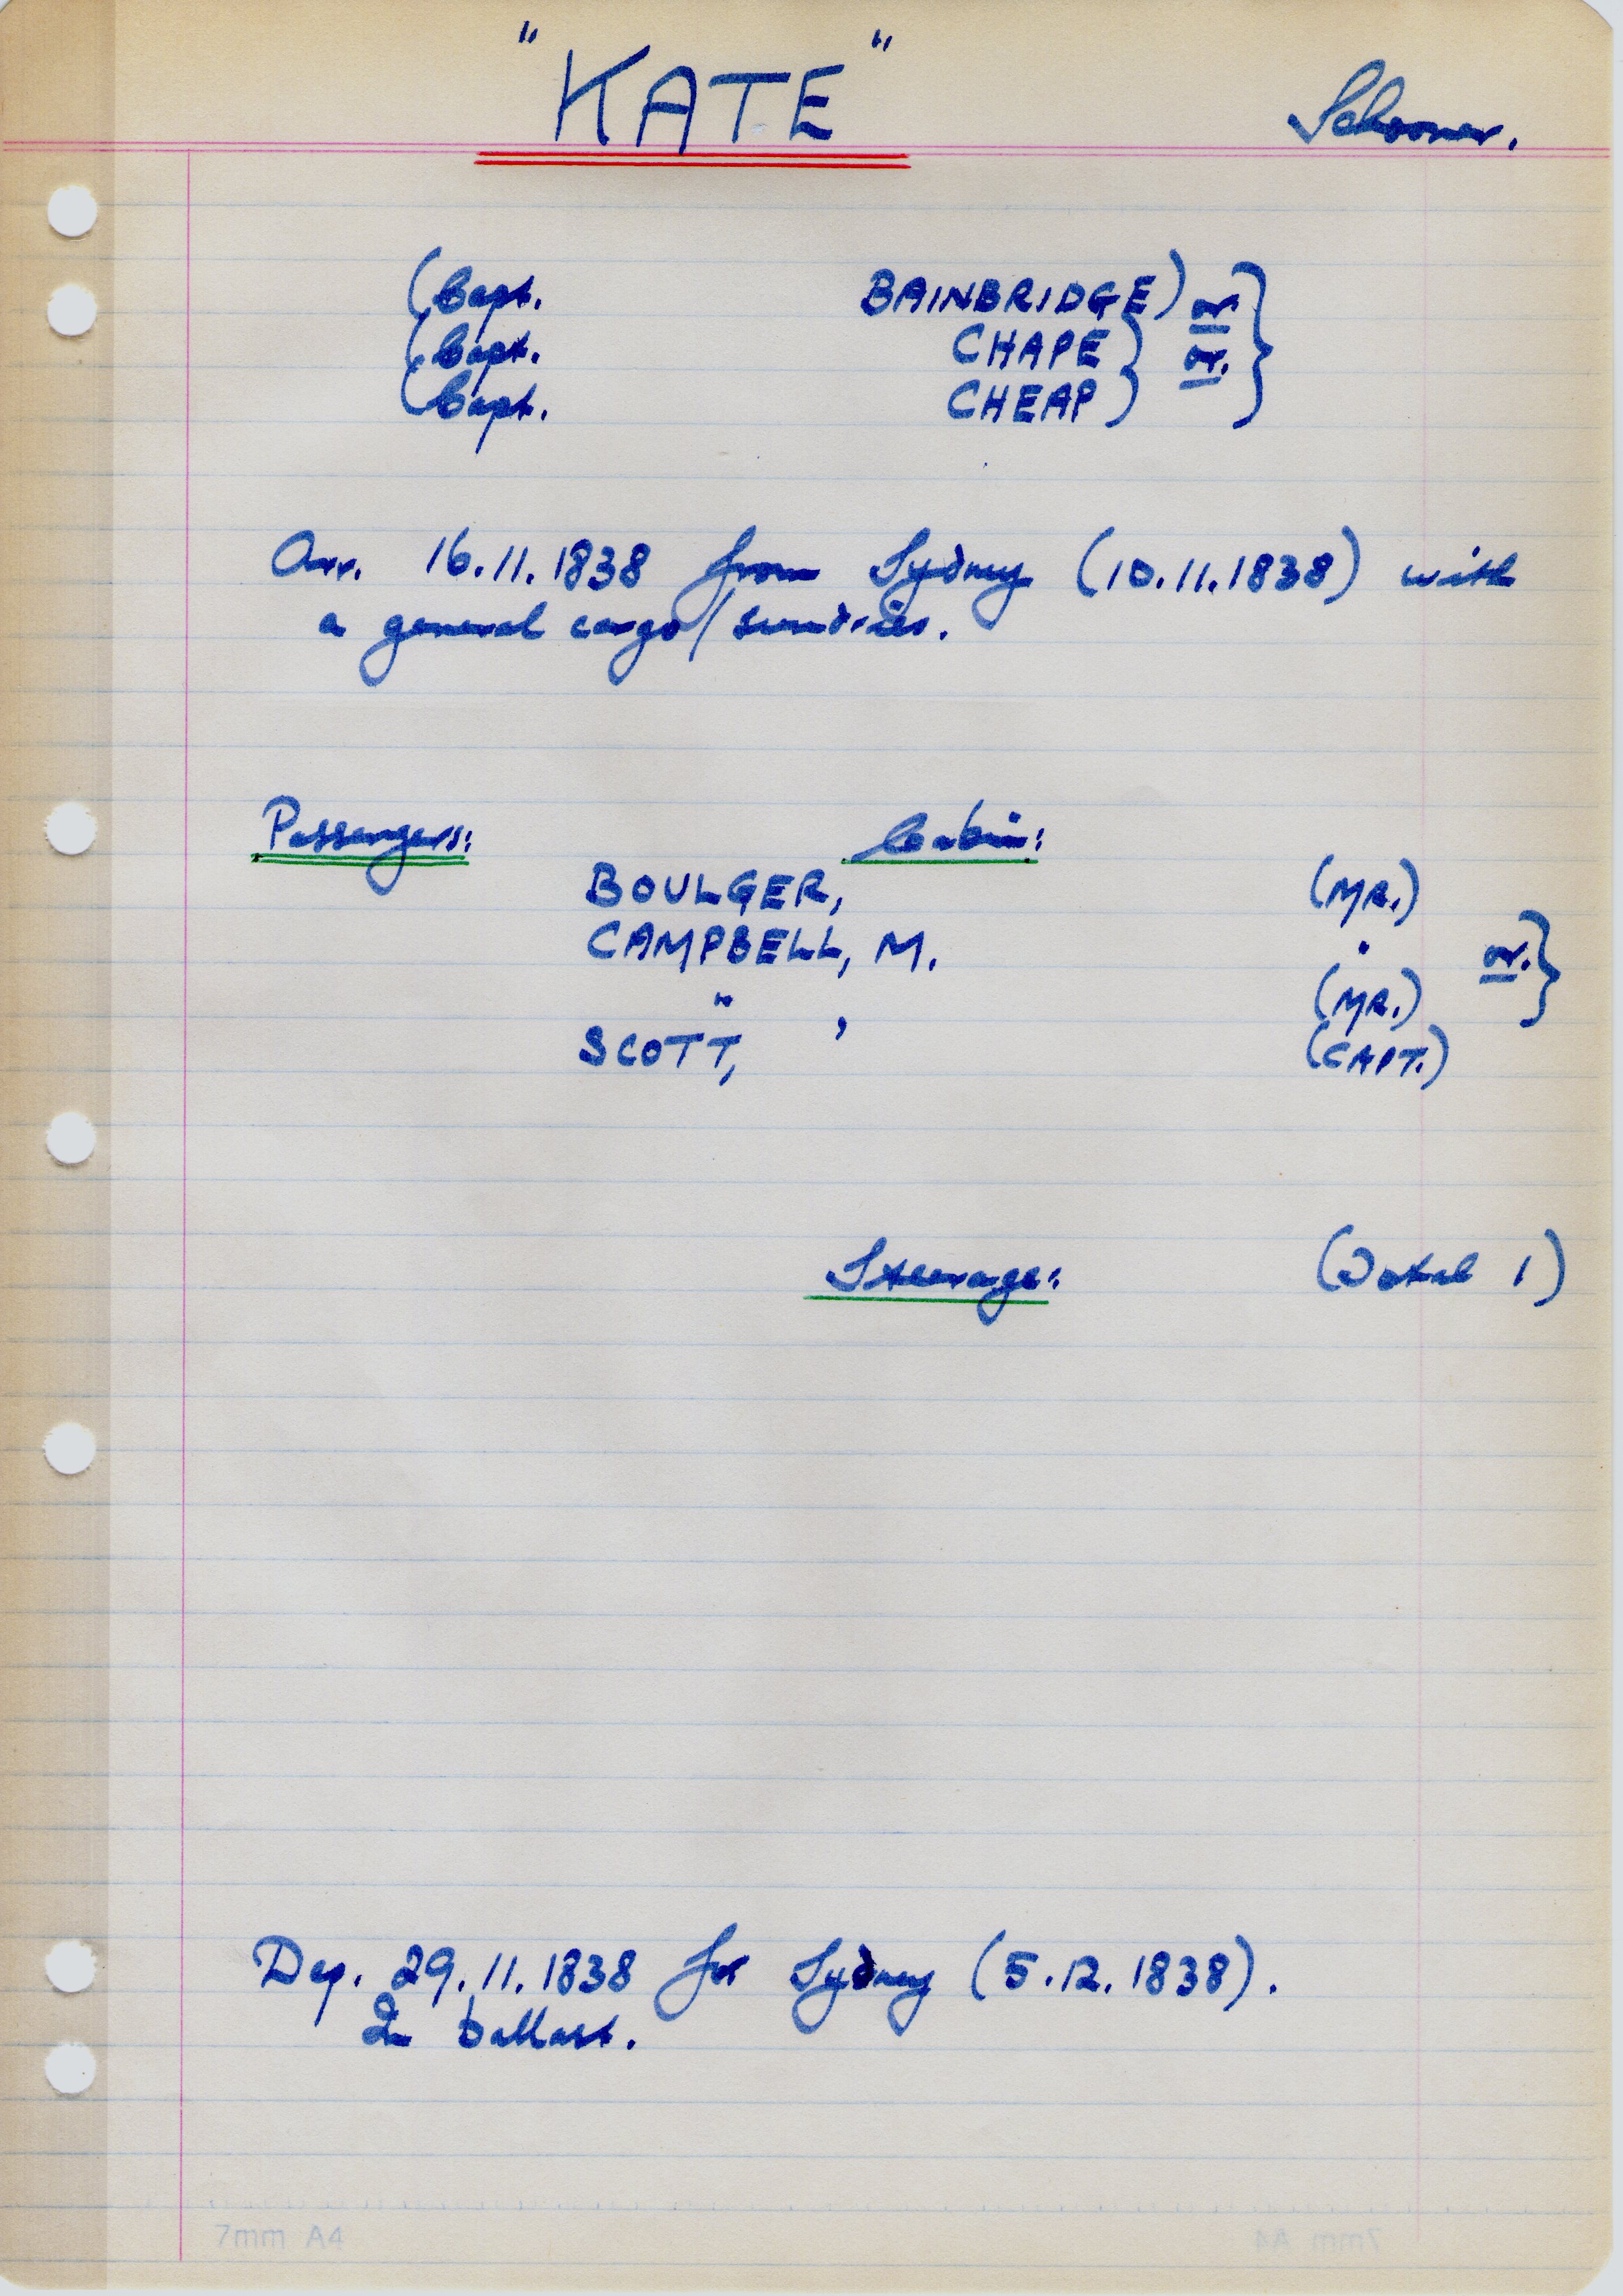 "KATE" Schooner.
(Capt. BAINBRIDGE) or. }
(Capt. CHAPE } or.
(Capt. CHEAP )
Arr. 16.11.1838 from Sydney (10.11.1838) with
a general cargo/sundries.
Passengers: Cabin:
BOULGER, (MR.)
CAMPBELL, M. . or. }
" , (MR.)
SCOTT, (CAPT.)
Steerage: (Total 1)
Dep. 29.11.1838 for Sydney (5.12.1838).
In ballast.
7mm A4